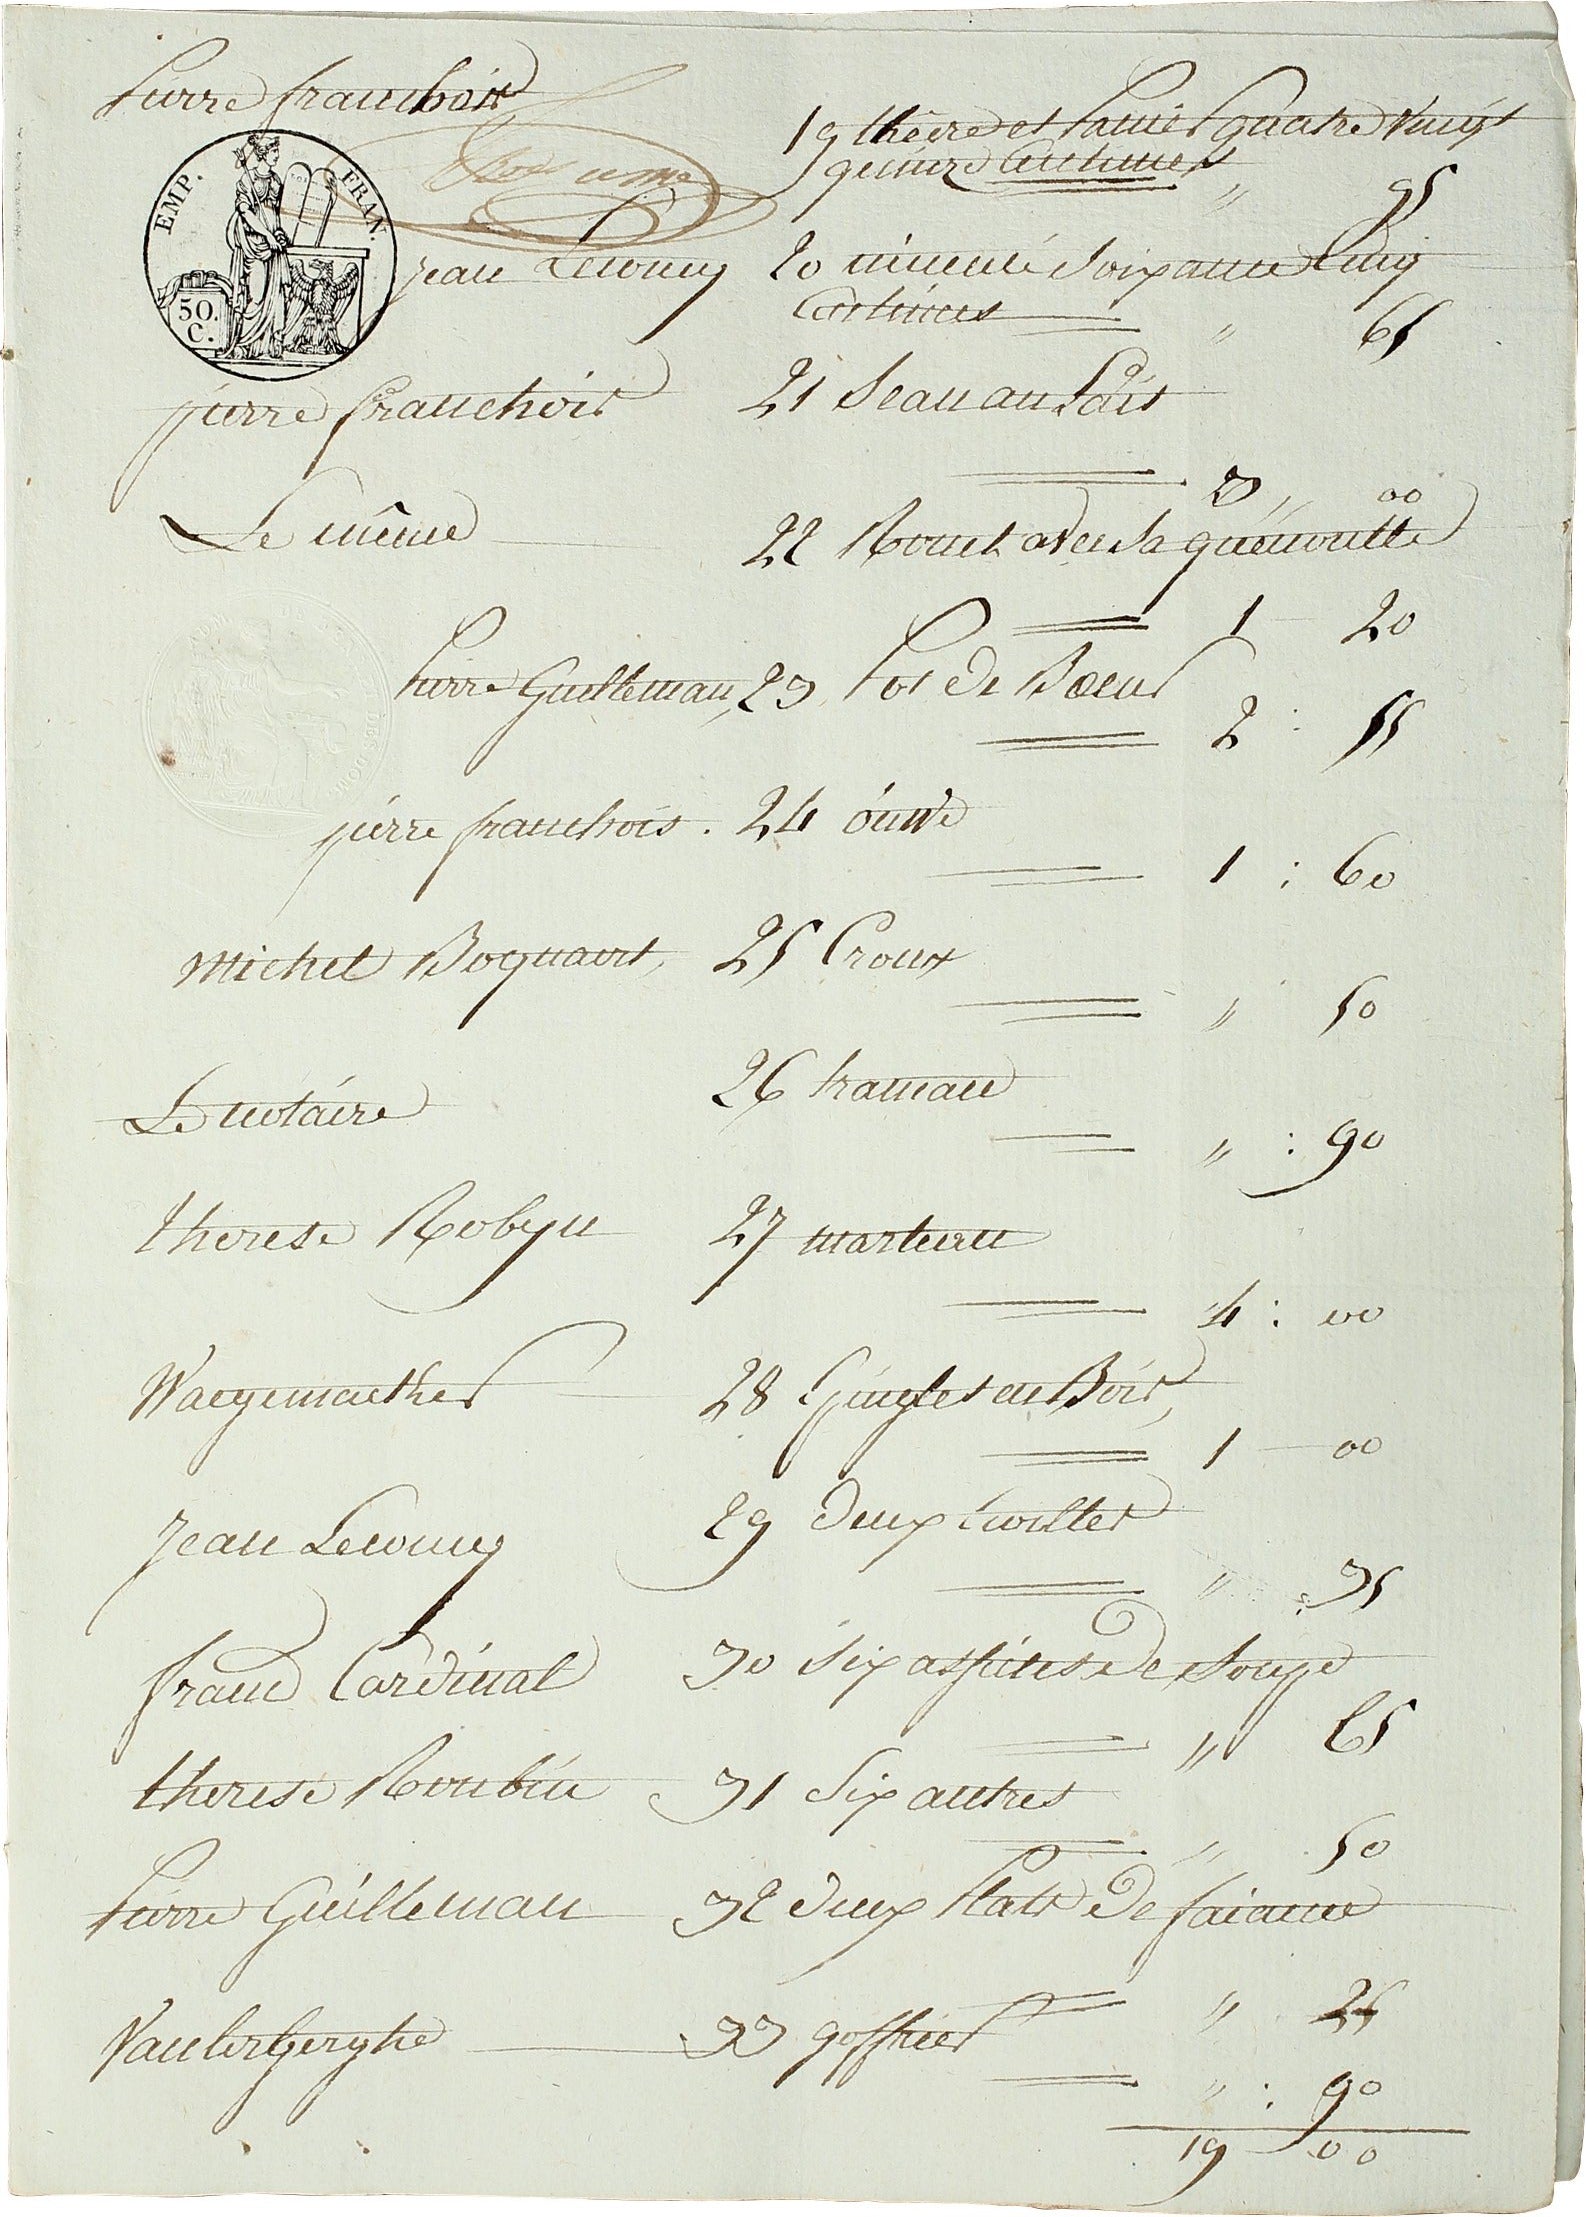 Pierre franchois
19 théere et Panier quatre vingt
quinze Centimes " 95
EMP. FRAN.
50.
C.
jean Lecomy 20 soixante Cinq
Centimes " 65
pierre franchois 21 Seau au Lait
3 " 00
Le même 22 Rouet avec sa quenouille
1 - 20
Pierre Guilleman, 23 Pot de Boeur
2 : 55
pierre franchois. 24 cuve
1 : 60
Michel Boquaert, 25 Croux
" 50
Le notaire 26 trainau
" : 90
therese Robyn 27 marteau
4 : 00
Waegemaecker 28 Gingles en Bois,
1 - 00
Jean Lecomy 29 deux
" : 35
francs Cardinal 30 six assiites de Soupe
" 65
therese Roubin 31 Six autres
" 50
Pierre Guilleman 32 deux Plats de faiance
" 25
Vanlerberghe 33 goffrier
" : 90
19 - 00